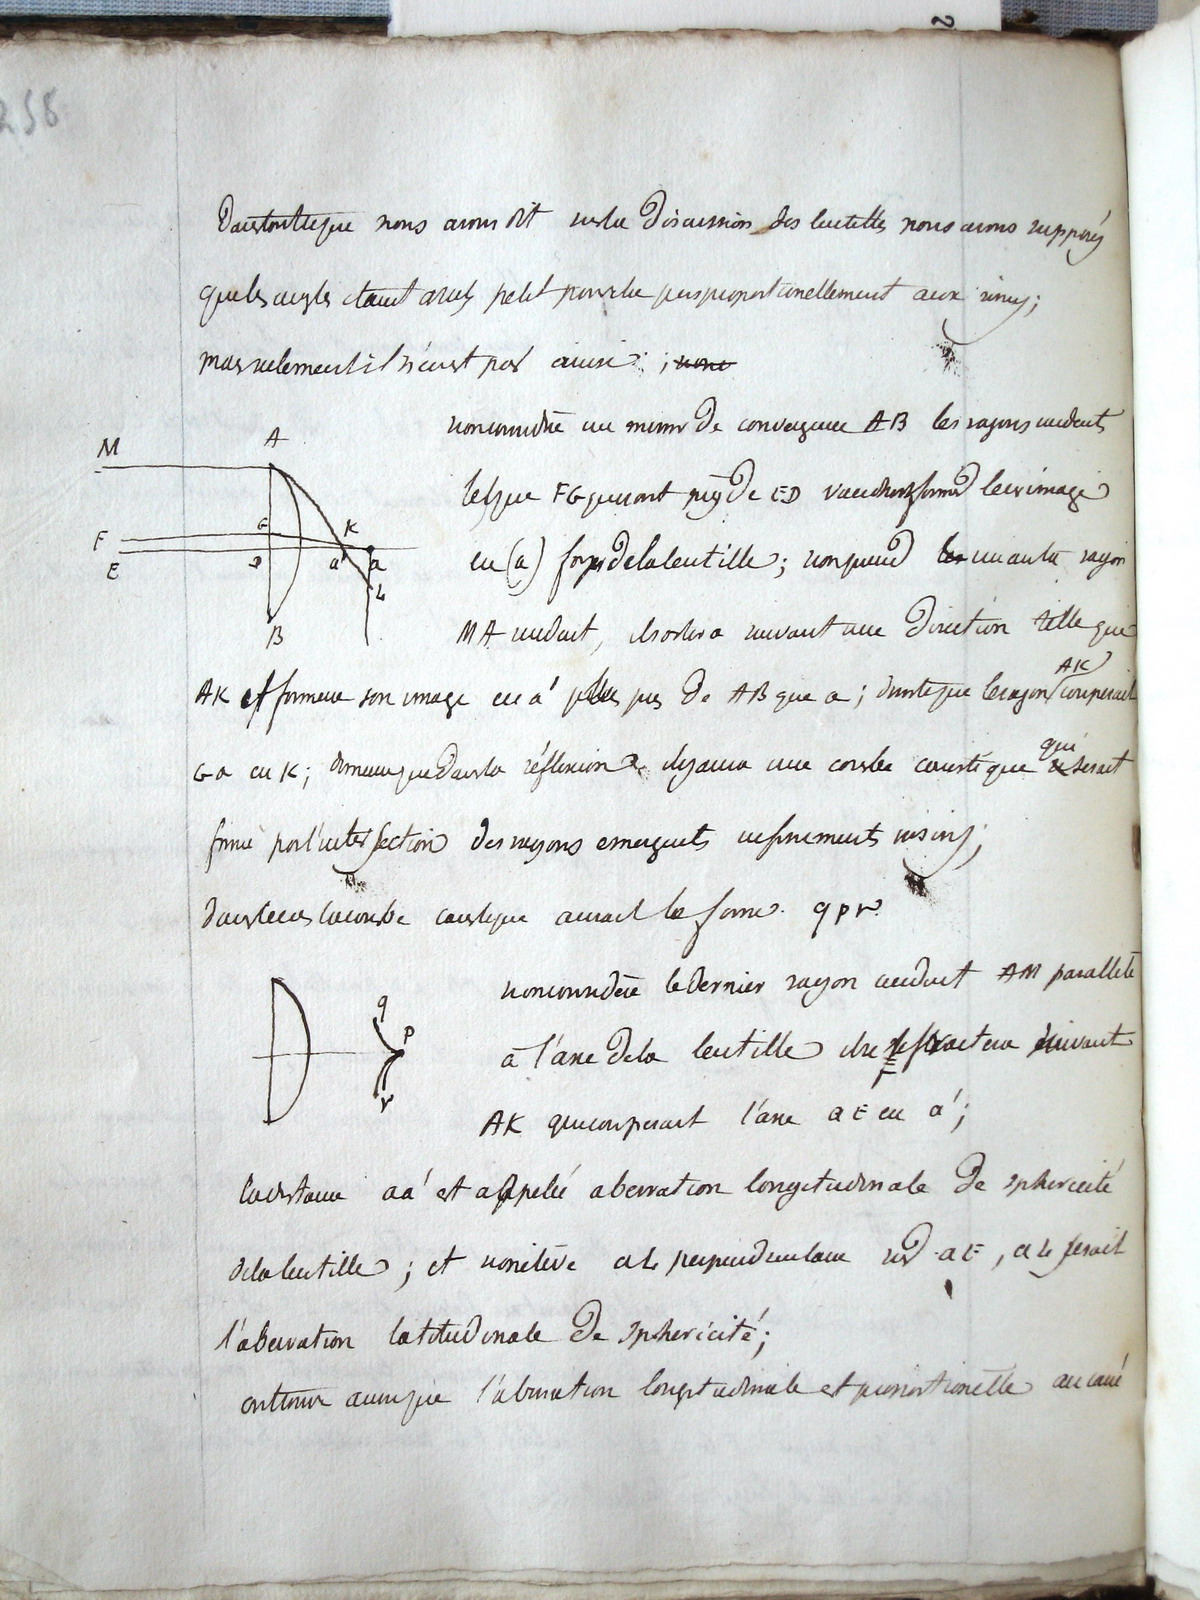 258
Dans tout ce que nous avons dit sur la discussion des lentilles nous avons supposés
que les angles étant assez petit pour être pris proportionellement aux sinus;
mais seulement il n'en est pas ainsi; nous
si on considère un miroir de convergence AB les rayons incidents
tels que FG qui sont près de ED viendront former leur image
en (a) foyer de la lentille; si on prend les un autre rayon
MA incident, il sortira suivant une direction telle que
AK et formera son image en a' plus près de AB que a; d'un te que le rayon AK couperait
Ga en K; de meme que dans la réflexion il y aura une courbe caustique qui serait
formé par l'intersection des rayons emergents infiniments voisins;
dans le cas la courbe caustique aurait la forme q p r
si on considère le dernier rayon incident AM parallele
à l'axe de la lentille il se refractera suivant
AK qui couperait l'axe aE en a';
la distance aa' est appelé aberration longitudinale de sphericité
de la lentille; et si on élève aL perpendiculaire sur aE, aL serait
l'aberration latitudinale de sphericité;
on trouve aussi que l'aberration longitudinale est proportionelle au carré
M
A
F
E
G
D
K
a'
a
L
B
q
p
r